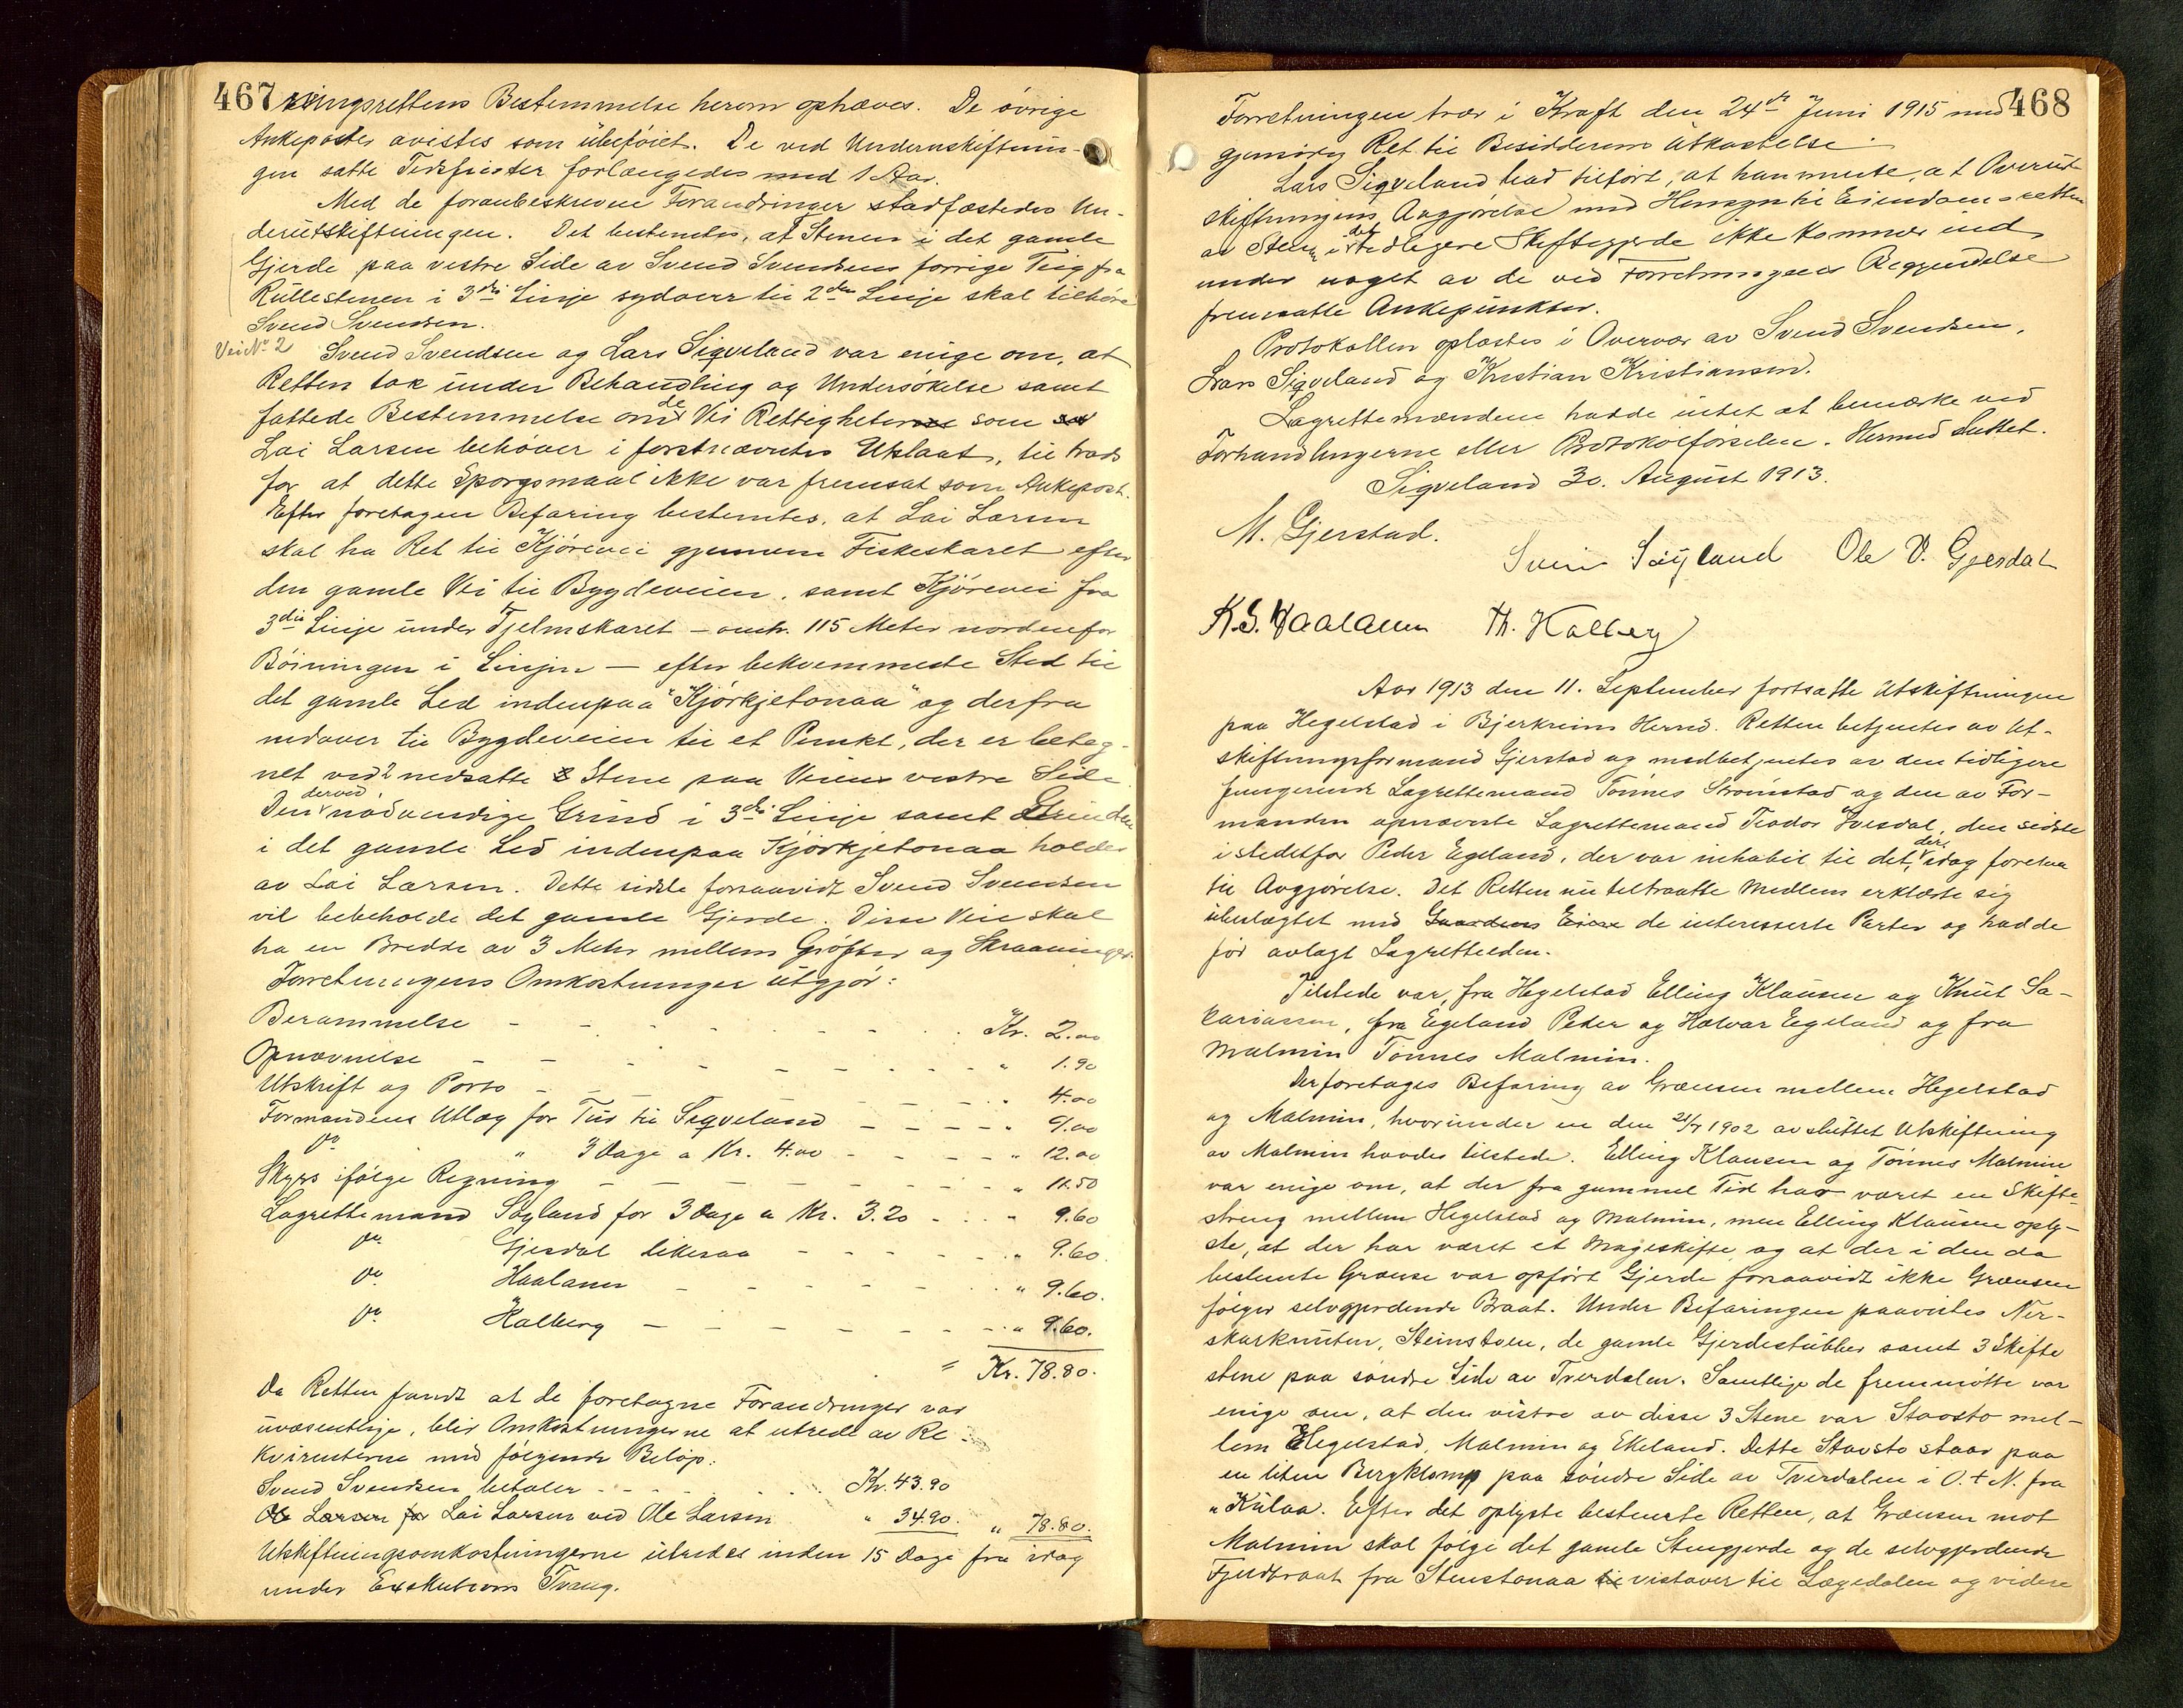 467
ningsrettens Bestemmelse herom ophæves. De øvrige
Ankeposter avistes som ubeføiet. De ved Underutskiftnin-
gen satte Tidsfrister forlængedes med 1 Aar.
Med de foranbeskrevne Forandringer stadfæstedes Un-
derutskiftningen. Det bestemtes, at Stenen i det gamle
Gjerde paa vestre Side av Svend Svendsens forrige Teig fra
Rullestenen i 3die Linje sydover til 2den Linje skal tilhøre
Svend Svendsen.
Vei No 2
Svend Svendsen og Lars Sigveland var enige om, at
Retten tok under Behandling og Undersøkelse samt
fattede Bestemmelse om de Vei Rettigheter som
Lai Larsen behøver i forstnævntes Utslaat, til trods
for at dette Spørgsmaal ikke var fremsat som Ankepost.
Efter foretagen Befaring bestemtes, at Lai Larsen
skal ha Ret til Kjørevei gjennem Fiskeskaret efter
den gamle Vei til Bygdeveien, samt Kjørevei fra
3die Linje under Tjelmskaret – omtr. 115 Meter nordenfor
Bøiningen i Linjen – efter bekvemmeste Sted til
det gamle Led indenpaa "Kjørkjetonaa" og derfra
nedover til Bygdeveien til et Punkt, der er beteg-
net ved 2 nedsatte Stene paa Veiens vestre Side
Den derved nødvendige Grind i 3die Linje samt Grinden
i det gamle Led indenpaa Kjørkjetonaa holdes
av Lai Larsen. Dette sidste forsaavidt Svend Svendsen
vil bebeholde det gamle Gjerde. Disse Veie skal
ha en Bredde av 3 Meter mellem Grøfter og Skraaninger.
Forretningens Omkostninger utgjør:
Berammelse - - - - - Kr. 2.00
Opnævnelse - - - - - " 1.90
Utskrift og Porto - - - - - " 4.00
Formandens Utlæg for Tur til Sigveland - - - - " 9.00
Do " 3 Dage a Kr. 4.00 - - - - " 12.00
Skyss ifølge Regning - - - - - " 11.50
Lagrettemand Søyland for 3 Dage a Kr. 3.20 - - - " 9.60
Do Gjesdal likesaa - - - - " 9.60.
Do Haaland - - - - - " 9.60.
Do Holberg - - - - - " 9.60.
= Kr. 78.80.
Da Retten fandt at de foretagne Forandringer var
uvæsentlige, blir Omkostningerne at utrede av Re-
kvirenterne med følgende Beløp:
Svend Svendsen betaler - - - Kr. 43.90
Ole Larsen for Lai Larsen ved Ole Larsen " 34.90. " 78.80.
Utskiftningsomkostningerne utredes inden 15 Dage fra idag
under Exekutions Tvang.
468
Forretningen trær i Kraft den 24de Juni 1915 med
gjensidig Ret til Besidderens Utkastelse
Lars Sigveland bad tilført, at han mente, at Overut-
skiftningens Avgjørelse med Hensyn til Eiendomsretten
av Stenen i det tidligere Skiftegjerde ikke kommer ind
under noget av de ved Forretningens Begyndelse
fremsatte Ankepunkter.
Protokollen oplæstes i Overvær av Svend Svendsen,
Lars Sigveland og Kristian Kristiansen.
Lagrettemændene hadde intet at bemærke ved
Forhandlingerne eller Protokolførselen. Hermed Sluttet.
Sigveland 30. August 1913.
M. Gjerstad.
Svein Søyland Ole V. Gjesdal
K.S. Haaland Th. Holberg
Aar 1913 den 11. September fortsatte Utskiftningen
paa Hegelstad i Bjerkreim Herred. Retten betjentes av Ut-
skiftningsformand Gjerstad og medbetjentes av den tidligere
fungerende Lagrettemand Tønnes Strømstad og den av For-
manden opnævnte Lagrettemand Teodor Ivesdal, den sidste
istedetfor Peder Egeland, der var inhabil til det, der idag foretaes
til Avgjørelse. Det Retten nu tiltraatte Medlem erklærte sig
ubeslægtet med Gaardens Eiere de interesserte Parter og hadde
før avlagt Lagretteeden.
Tilstede var, fra Hegelstad Elling Klausen og Knut Sa-
kariassen, fra Egeland Peder og Halvar Egeland og fra
Malmin Tønnes Malmin.
Der foretoges Befaring av Grænsen mellem Hegelstad
og Malmin, hvorunder en den 21/7 1902 avsluttet Utskiftning
av Malmin havdes tilstede. Elling Klausen og Tønnes Malmin
var enige om, at der fra gammel Tid har været en Skifte-
streng mellem Hegelstad og Malmin, men Elling Klausen oply-
ste, at der har været et Mageskifte og at der i den da
bestemte Grænse var opført Gjerde forsaavidt ikke Grænsen
følger selvgjerdende Braat. Under Befaringen paavistes Ner-
skarknuten, Steinstolen, de gamle Gjerdestubber samt 3 Skifte
stene paa søndre Side av Tverdalen. Samtlige de fremmøtte var
enige om, at den vestre av disse 3 Stene var Stavsto mel-
lem Hegelstad, Malmin og Ekeland. Dette Stavsto staar paa
en liten Bergklomp paa søndre Side av Tverdalen i O. t N. fra
"Kulaa. Efter det oplyste bestemte Retten, at Grænsen mot
Malmin skal følge det gamle Stengjerde og de selvgjerdende
Fjeldbraat fra Stenstonaa vestover til Lægedalen og videre